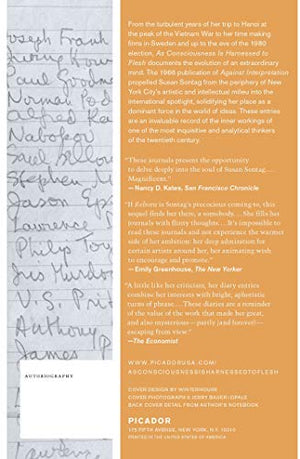 oseph Frank
Saul Bellow
V. S. Prit
Anthony P
James
AUTOBIOGRAPHY
From the turbulent years of her trip to Hanoi at
the peak of the Vietnam War to her time making
films in Sweden and up to the eve of the 1980
election, As Consciousness Is Harnessed to
Flesh documents the evolution of an extraordinary
mind. The 1966 publication of Against Interpretation
propelled Susan Sontag from the periphery of New
York City's artistic and intellectual milieu into the
international spotlight, solidifying her place as a
dominant force in the world of ideas. These entries
are an invaluable record of the inner workings of
one of the most inquisitive and analytical thinkers
of the twentieth century.
"These journals present the opportunity
to delve deeply into the soul of Susan Sontag. . . .
Magnificent."
—Nancy D. Kates, San Francisco Chronicle
"If Reborn is Sontag's precocious coming-to, this
sequel finds her then, a somebody. . . . She fills her
journals with flinty thoughts. . . . It's impossible to
read these journals and not experience the warmer
side of her ambition: her deep admiration for
certain artists around her, her animating wish
to encourage and promote."
—Emily Greenhouse, The New Yorker
"A little like her criticism, her diary entries
combine her interests with bright, aphoristic
turns of phrase. . . . These diaries are a reminder
of the value of the work that made her great,
and also mysterious—partly [and forever]—
escaping from view."
—The Economist
WWW.PICADORUSA.COM/
ASCONSCIOUSNESSISHARNESSEDTOFLESH
COVER DESIGN BY WINTERHOUSE
COVER PHOTOGRAPH © JERRY BAUER/OPALE
BACK COVER DETAIL FROM AUTHOR'S NOTEBOOK
PICADOR
175 FIFTH AVENUE, NEW YORK, N.Y. 10010
PRINTED IN THE UNITED STATES OF AMERICA